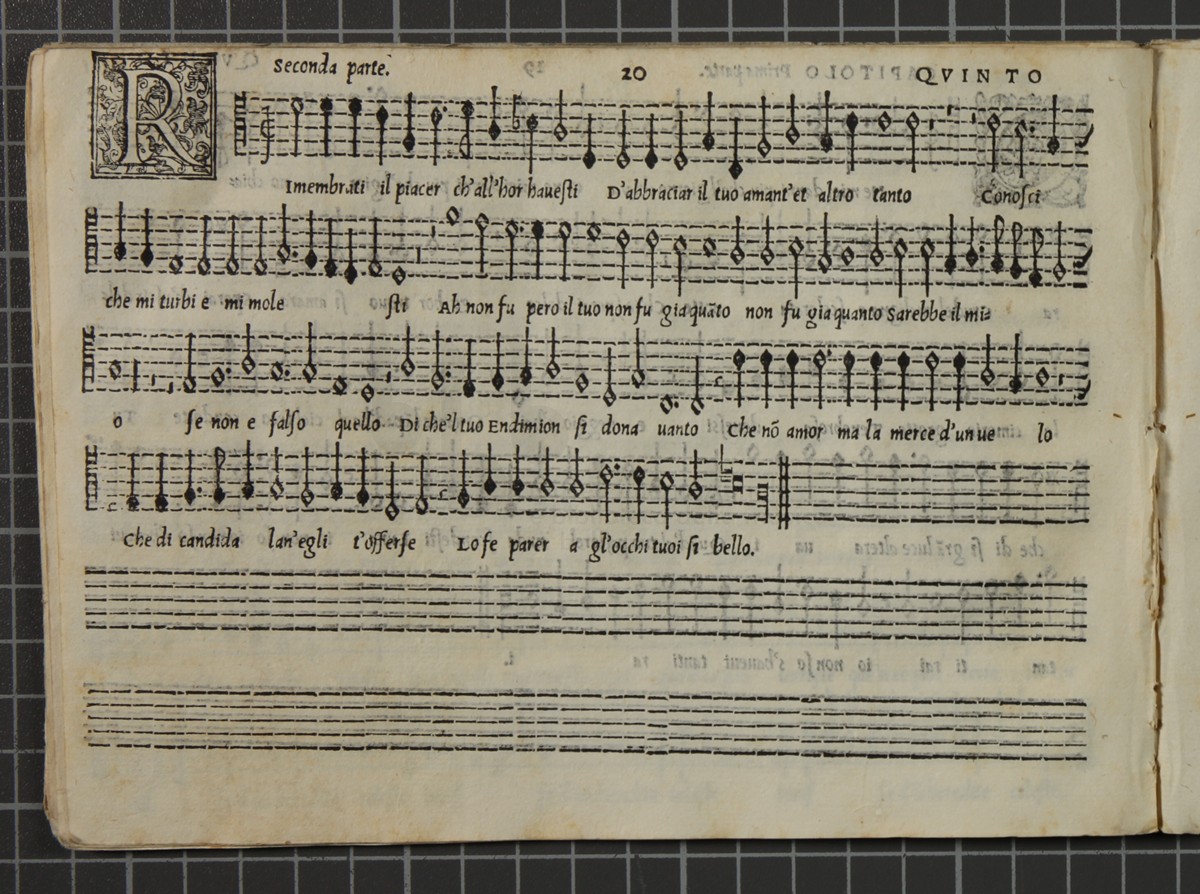 Seconda parte. 20 QVINTO
RImembrati il piacer ch'all'hor hauesti D'abbraciar il tuo amant'et altro tanto Conosci
che mi turbi e mi mole sti Ah non fu pero il tuo non fu gia quãto non fu gia quanto Sarebbe il mi
o se non e falso quello Di che'l tuo Endimion si dona uanto Che nõ amor ma la merce d'un ue lo
Che di candida lan'egli t'offerse Lo fe parer a gl'occhi tuoi si bello.